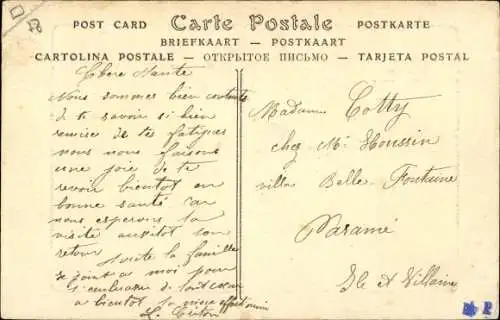 POST CARD Carte Postale POSTKARTE
BRIEFKAART — POSTKAART
CARTOLINA POSTALE — ОТКРЫТОЕ ПИСЬМО — TARJETA POSTAL
Chere Tante
Nous sommes bien contente
de te savoir si bien
remise de tes fatigues
nous nous faisons
une joie de te
revoir bientot en
bonne santé car
nous esperons ta
visite aussitot ton
retour
Toute la famille
se joint a moi pour
t'embrasser de tout cœur
a bientot ta niece
L.
Madame Cotty
chez Mr Houssin
villa Belle Fontaine
Paramé
Ile et Villaine